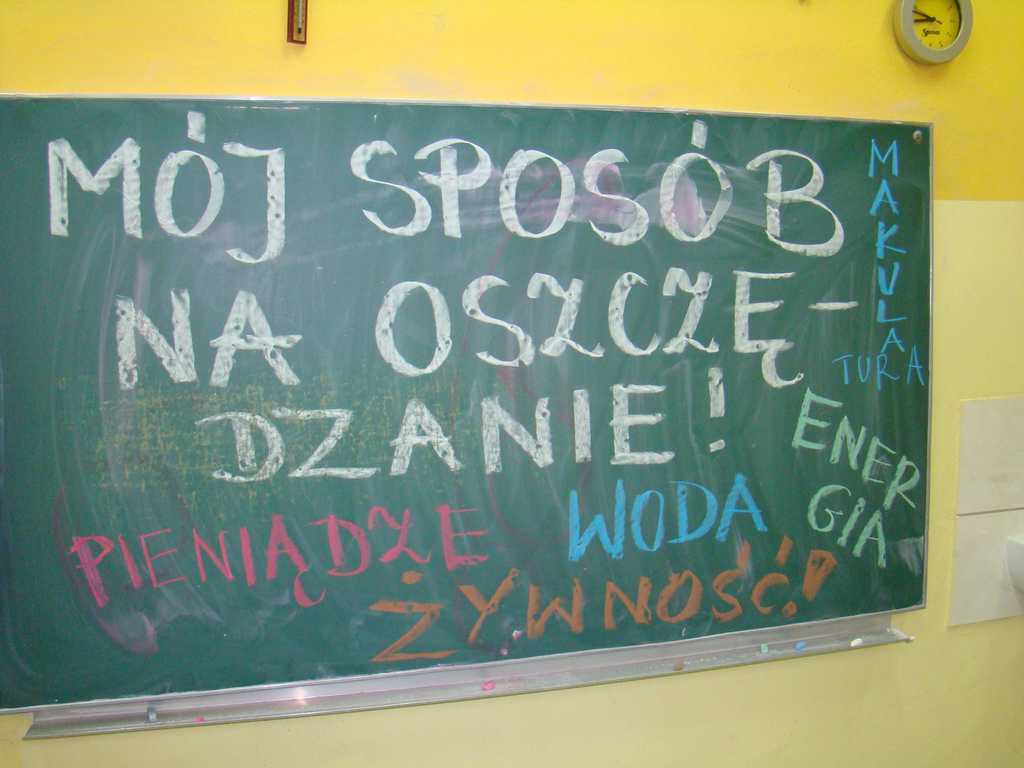 MÓJ SPOSÓB
NA OSZCZĘ-
DZANIE!
MAKULA
TURA
ENER
GIA
WODA
PIENIĄDZE
ŻYWNOŚĆ!